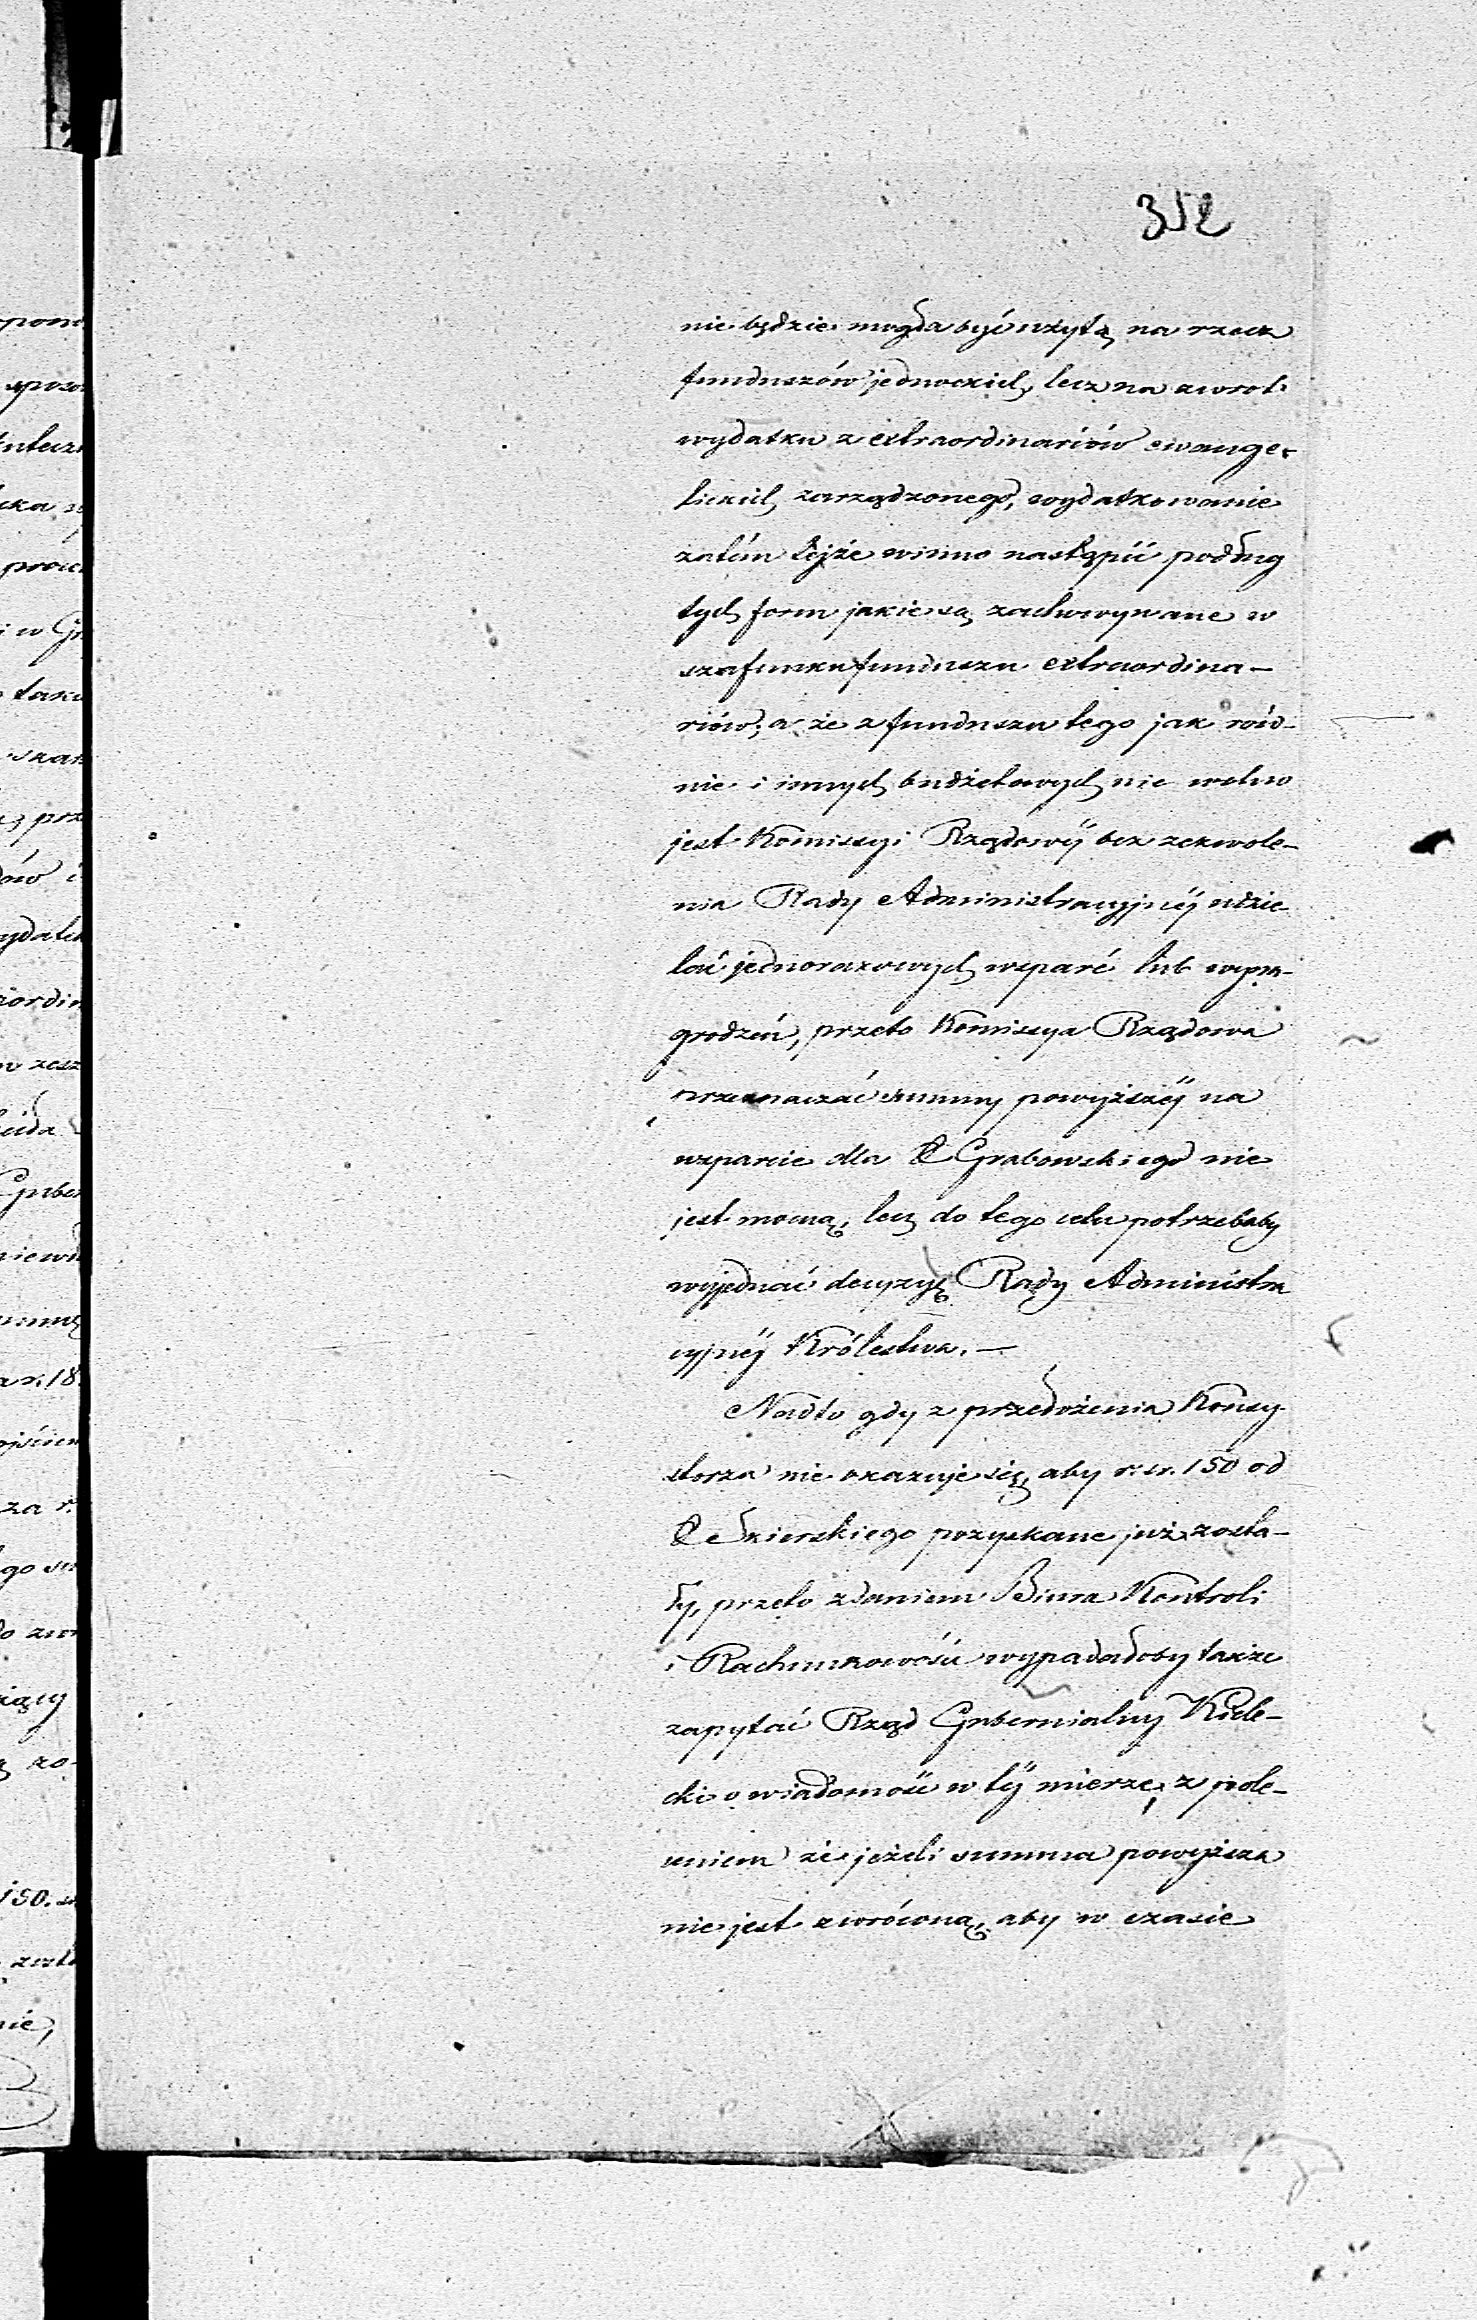 352
nie będzie mogła być użytą na rzecz
funduszów jednockich, lecz na zwrot
wydatku z extraordinariów ewange-
lickich zarządzonego, wydatkowanie
zatém tejże winno nastąpić podług
tych form jakie są zachowywane w
szafunku funduszu extraordina-
riów; a że z funduszu tego jak rów-
nie i innych budżetowych nie wolno
jest Komissyi Rządowéj bez zezwole-
nia Rady Administracyjnéj udzie-
lać jednorazowych wsparć lub wyna-
grodzeń, przeto Komissya Rządowa
przeznaczać summy powyższéj na
wsparcie dla X Grabowskiego nie
jest mocną, lecz do tego celu potrzebaby
wyjednać decyzyę Rady Administra
cyjnéj Królestwa. —
Nadto gdy z przedłożenia Konsy-
storza nie okazuje się, aby r. sr. 150 od
X pozyskane już zosta-
ły, przeto zdaniem Biura Kontroli
i Rachunkowości wypadałoby także
zapytać Rząd Gubernialny Kiele-
cki o wiadomość w téj mierze, z pole-
ceniem że jeżeli summa powyższa
nie jest zwróconą, aby w czasie